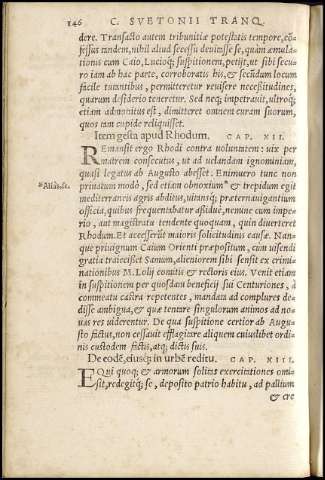 146 C. SVETONII TRANQ.
dere. Transacto autem tribunitiæ potestatis tempore, cõ-
fessus tandem, nihil aliud secessu deuitasse se, quàm æmula-
tionis cum Caio, Lucioq; suspitionem, petijt, ut sibi secu-
ro iam ab hac parte, corroboratis his, & secūdum locum
facile tuentibus, permitteretur reuisere necessitudines,
quarum desiderio teneretur. Sed neq; impetrauit, ultroq;
etiam admonitus est, dimitteret omnem curam suorum,
quos tam cupide reliquisset.
Item gesta apud Rhodum. CAP. XII.
REmansit ergo Rhodi contra uoluntatem: uix per
matrem consecutus, ut ad uelandam ignominiam,
quasi legatus ab Augusto abesset. Enimuero tunc non
priuatum modò, sed etiam obnoxium* & trepidum egit
mediterraneis agris abditus, uitansq; præternauigantium
officia, quibus frequentabatur assiduè, nemine cum impe-
rio, aut magistratu tendente quoquam, quin diuerteret
Rhodum. Et accesserūt maioris solicitudinis causæ. Nan-
que priuignum Caium Orienti præpositum, cùm uisendi
gratia traiecisset Samum, alieniorem sibi sensit ex crimi-
nationibus M. Lolij comitis & rectoris eius. Venit etiam
in suspitionem per quosdam beneficij sui Centuriones, à
commeatu castra repetentes, mandata ad complures de-
disse ambigua, & quæ tentare singulorum animos ad no-
uas res uiderentur. De qua suspitione certior ab Augu-
sto factus, non cessauit efflagitare aliquem cuiuslibet ordi-
nis custodem factis, atq; dictis suis.
De eodē, eiusq; in urbē reditu. CAP. XIII.
EQui quoq; & armorum solitas exercitationes omi-
sit, redegitq; se, deposito patrio habitu, ad pallium
& cre